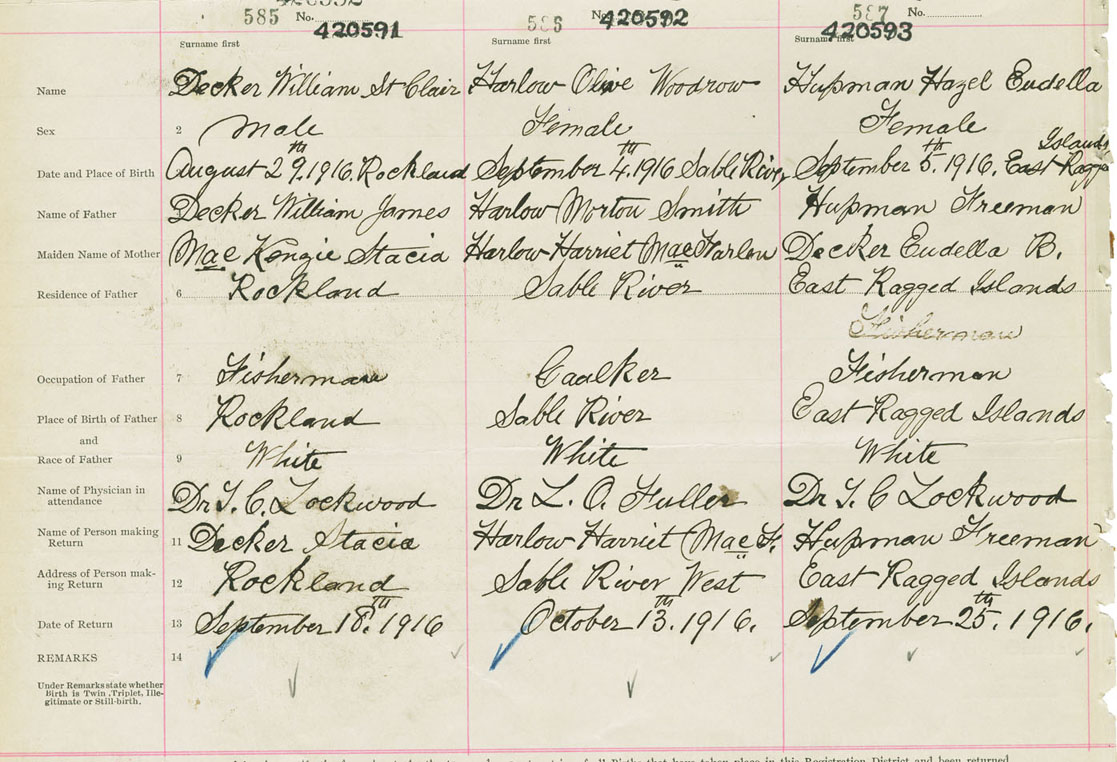 585 No. 420591 586 No. 420592 587 No. 420593
Surname first Surname first Surname first
Name Decker William St Clair Harlow Olive Woodrow Hupman Hazel Eudella
Sex 2 Male Female Female
Date and Place of Birth August 29th. 1916. Rockland September 4th. 1916 Sable River September 5th. 1916. East Ragged Islands
Name of Father Decker William James Harlow Morton Smith Hupman Freeman
Maiden Name of Mother MacKenzie Stacia Harlow Harriet MacFarlen Decker Eudella B.
Residence of Father 6 Rockland Sable River East Ragged Islands
Fisherman
Occupation of Father 7 Fisherman Caalker Fisherman
Place of Birth of Father 8 Rockland Sable River East Ragged Islands
and
Race of Father 9 White White White
Name of Physician in
attendance Dr. C. Lockwood Dr L. O. Fuller Dr C Lockwood
Name of Person making
Return 11 Decker Stacia Harlow Harriet Mac F. Hupman Freeman
Address of Person mak-
ing Return 12 Rockland Sable River West East Ragged Islands
Date of Return 13 September 18.TH 1916 October 13th. 1916. September 25th. 1916.
REMARKS 14
Under Remarks state whether
Birth is Twin, Triplet, Ille-
gitimate or Still-birth.
of all Births that have taken place in this Registration District and been returned